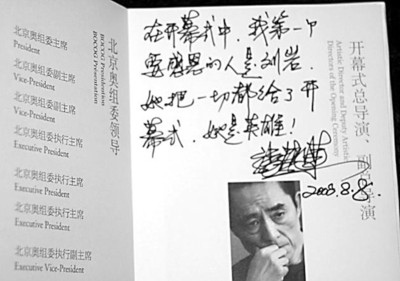 北京奥组委主席
President
北京奥组委副主席
Vice-President
北京奥组委副主席
Vice-President
北京奥组委执行主席
Executive President
北京奥组委执行主席
Executive President
北京奥组委执行主席
Executive President
北京奥组委执行副主席
Executive Vice-President
北京奥组委领导
BOCOG
在开幕式中,我第一个
要感恩的人是刘岩.
她把一切都给了开
幕式,她是英雄!
2008.8.8.
开幕式总导演、副总导演
Artistic Director and Deputy Artistic
Directors of the Opening Ceremony